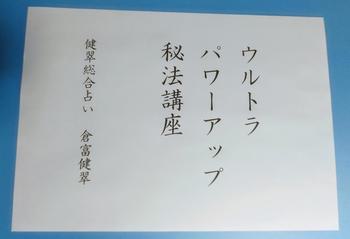 ウルトラ
パワーアップ
秘法講座
健翠総合占い　倉富健翠